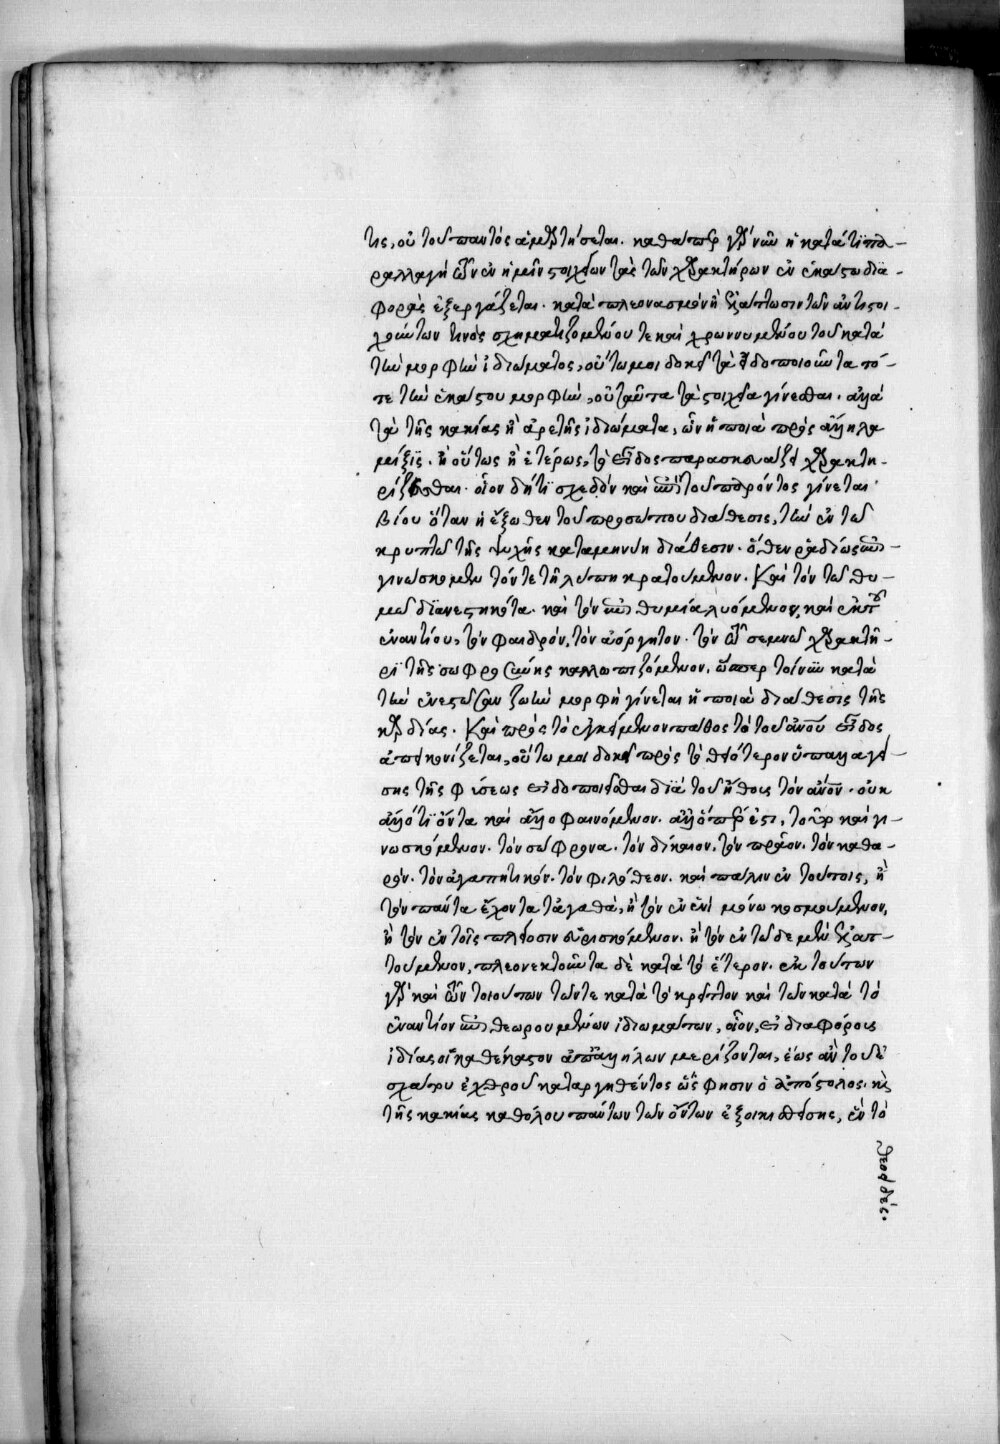 τις, οὐ τοῦ παντὸς ἁμαρτήσεται. καθάπερ γὰρ νῦν ἡ κατά τι πα-
ραλλαγὴ τῶν ἐν ἡμῖν στοιχείων τὰς τῶν χαρακτήρων ἐν ἑκάστῳ δια-
φορὰς ἐξεργάζεται. κατὰ πλεονασμὸν ἢ ἐλάττωσιν τῶν ἀντιστοι-
χούντων τινὸς σχηματιζομένου τε καὶ χρωννυμένου τοῦ κατὰ
τὴν μορφὴν ἰδιώματος, οὕτω μοι δοκεῖ τὰ εἰδοποιοῦντα τό-
τε τὴν ἑκάστου μορφὴν, οὐ ταῦτα τὰ στοιχεῖα γίνεσθαι. ἀλλὰ
τὰ τῆς κακίας ἢ ἀρετῆς ἰδιώματα, ὧν ἡ ποιὰ πρὸς ἄλληλα
μίξις. ἢ οὕτως ἢ ἑτέρως, τὸ εἶδος παρασκευάζει χαρακτη-
ρίζεσθαι. οἷον δή τι σχεδὸν καὶ ἐπὶ τοῦ παρόντος γίνεται
βίου ὅταν ἡ ἔξωθεν τοῦ προσώπου διάθεσις, τὴν ἐν τῷ
κρυπτῷ τῆς ψυχῆς καταμηνύῃ διάθεσιν. ὅθεν ῥαδίως ἐπι-
γινώσκομεν τόν τε τῇ λύπῃ κρατούμενον. καὶ τὸν τῷ θυ-
μῷ διανεστηκότα. καὶ τὸν ἐπιθυμίᾳ λυόμενον, καὶ ἐκ τοῦ
ἐναντίου, τὸν φαιδρόν, τὸν ἀόργητον. τὸν τῷ σεμνῷ χαρακτῆ-
ρι τῆς σωφροσύνης καλλωπιζόμενον. ὥσπερ τοίνυν κατὰ
τὴν ἐνεστῶσαν ζωὴν μορφὴ γίνεται ἡ ποιὰ διάθεσις τῆς
καρδίας. καὶ πρὸς τὸ ἐγκείμενον πάθος τὸ τοῦ ἀνου εἶδος
ἀπεικονίζεται, οὕτω μοι δοκεῖ πρὸς τὸ θειότερον ὑπαλλαγεί-
σης τῆς φύσεως εἰδοποιεῖσθαι διὰ τοῦ ἤθους τὸν ἀνον. οὐκ
ἄλλό τι ὄντα καὶ ἄλλο φαινόμενον. ἀλλ' ὅπερ ἐστι, τοῦτο καὶ γι-
νωσκόμενον. τὸν σώφρονα. τὸν δίκαιον, τὸν πρᾶον. τὸν καθα-
ρόν. τὸν ἀγαπητικόν. τὸν φιλόθεον. καὶ πάλιν ἐν τούτοις, ἢ
τὸν πάντα ἔχοντα τἀγαθὰ, ἢ τὸν ἐν ἑνὶ μόνῳ κοσμούμενον,
ἢ τὸν ἐν τοῖς πλείοσιν εὑρισκόμενον. ἢ τὸν ἐν τῷδε μὲν ἐλατ-
τούμενον, πλεονεκτοῦντα δὲ κατὰ τὸ ἕτερον. ἐκ τούτων
γὰρ καὶ τῶν τοιούτων τῶν τε κατὰ τὸ κρεῖττον καὶ τῶν κατὰ τὸ
ἐναντίον ἐπιθεωρουμένων ἰδιωμάτων, εἰς διαφόρους
ἰδέας οἱ καθέκαστον ἀπ' ἀλλήλων μερίζονται, ἕως ἂν τοῦ ἐ-
σχάτου ἐχθροῦ καταργηθέντος ὥς φησιν ὁ ἀπόστολος. καὶ
τῆς κακίας καθόλου πάντων τῶν ὄντων ἐξοικισθείσης, ἓν τὸ
θεοειδές.